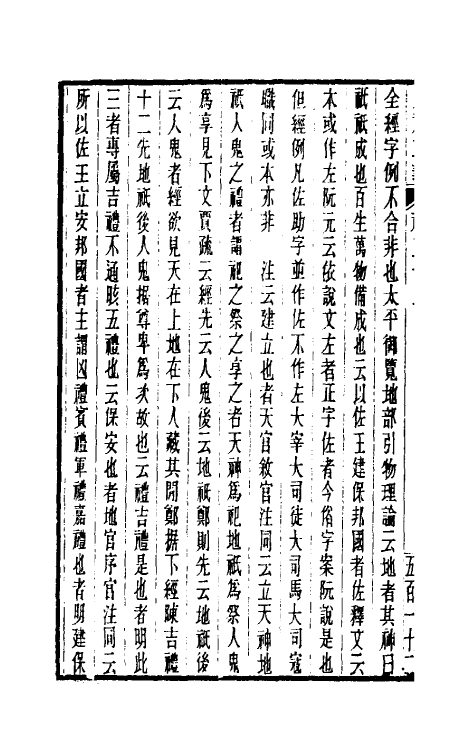 全經字例不合非也太平御覽地部引物理論云地者其神曰
祇祇成也百生萬物備成也云以佐王建保邦國者佐釋文云
本或作左阮元云依說文左者正字佐者今俗字案阮說是也
但經例凡佐助字並作佐不作左大宰大司徒大司馬大司寇
職同或本亦非　注云建立也者天官敘官注同云立天神地
祇人鬼之禮者謂祀之祭之享之者天神爲祀地祇爲祭人鬼
爲享見下文賈疏云經先云人鬼後云地祇鄭則先云地祇後
云人鬼者經欲見天在上地在下人藏其間鄭據下經陳吉禮
十二先地祇後人鬼据尊卑爲次故也云禮吉禮是也者明此
三者專屬吉禮不通晐五禮也云保安也者地官序官注同云
所以佐王立安邦國者主謂凶禮賓禮軍禮嘉禮也者明建保
五百一十二